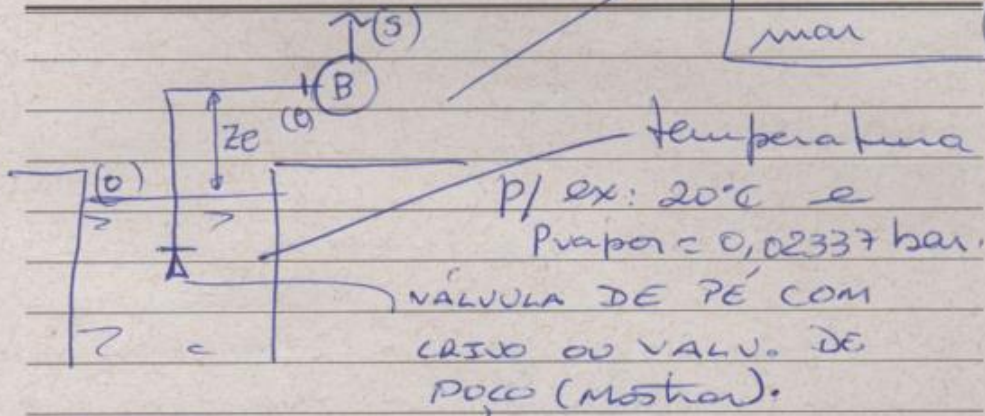 (S)
mar (
B
(e)
Ze
(0)
temperatura
p/ ex: 20°C e
Pvapor = 0,02337 bar.
VÁLVULA DE PÉ COM
CRIVO OU VALV. DE
POÇO (Mostrar).